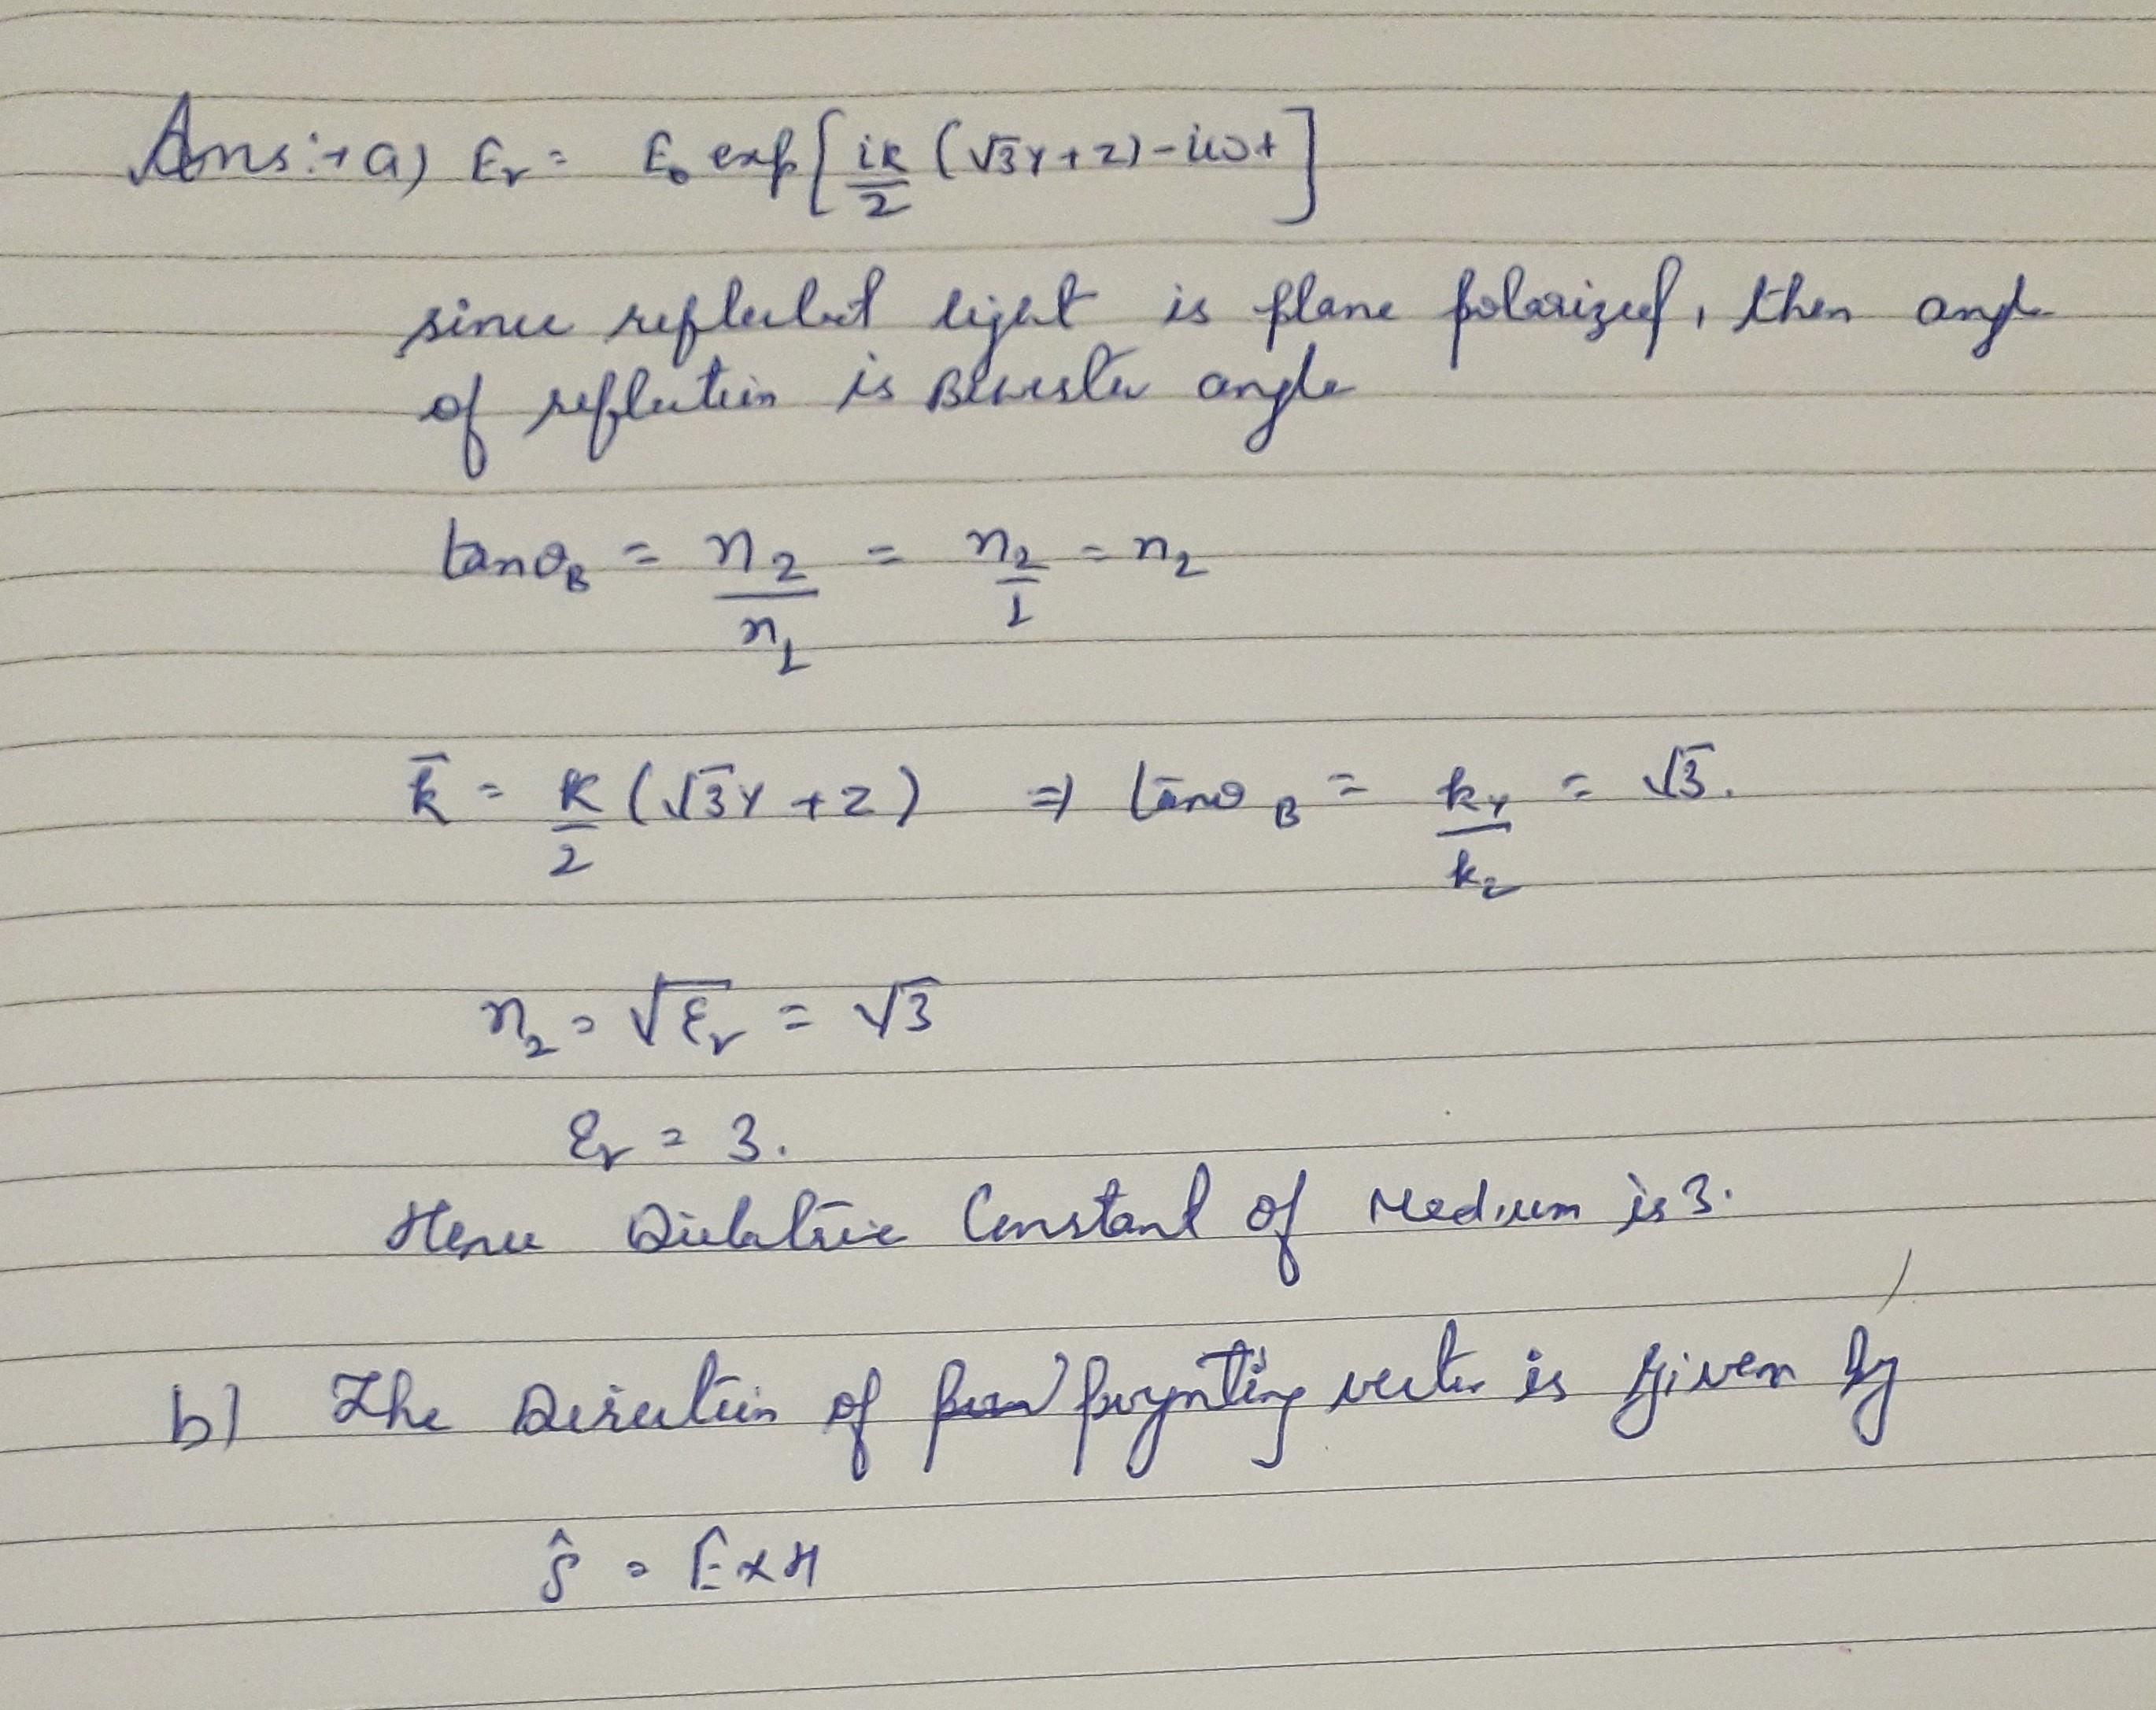 Ans:→ a) Er = E₀ exp[ik/2 (√3y + z) - iωt]
since reflected light is plane polarized, then angle
of reflection is Brewster angle
tanθ_B = n₂/n₁ = n₂/1 = n₂
k̄ = K/2 (√3y + z) ⇒ tanθ_B = k_y/k_z = √3.
n₂ = √εr = √3
εr = 3.
Hence Dielectric Constant of Medium is 3.
b) The Direction of poynting vector is given by
ŝ = E×H